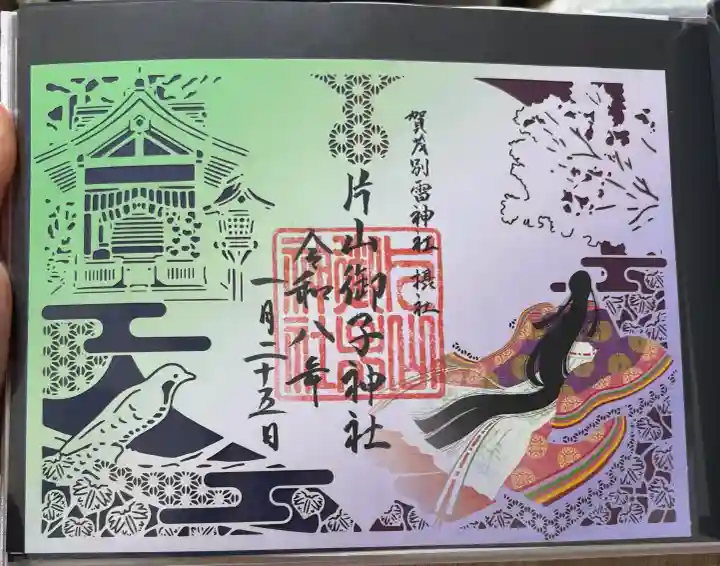 賀茂別雷神社 摂社
片山御子神社
令和八年
一月二十五日